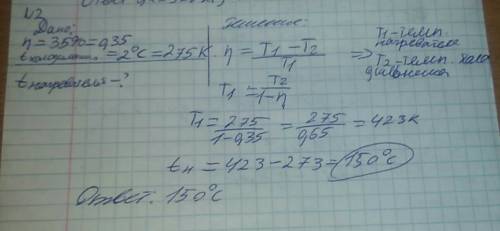 №2
Дано:
η = 35% = 0,35
t холодильн. = 2°C = 275 K
t нагревателя - ?
Решение:
η = T₁ - T₂ / T₁ ⇒
T₁ - темп. нагревателя
T₂ - темп. холо
T₁ = T₂ / 1 - η
T₁ = 275 / 1 - 0,35 = 275 / 0,65 = 423 K
tн = 423 - 273 = 150°C
Ответ. 150°C